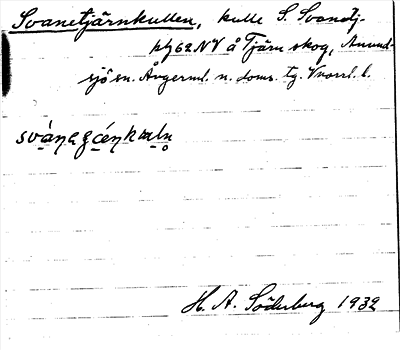 Svanetjärnkullen, kulle S. Svanetj.
hg 62 NV å Tjärn skog, Anund-
sjö sn. Ångerml. n. doms. tg. Vnorrl. l.
H. A. Söderberg 1932